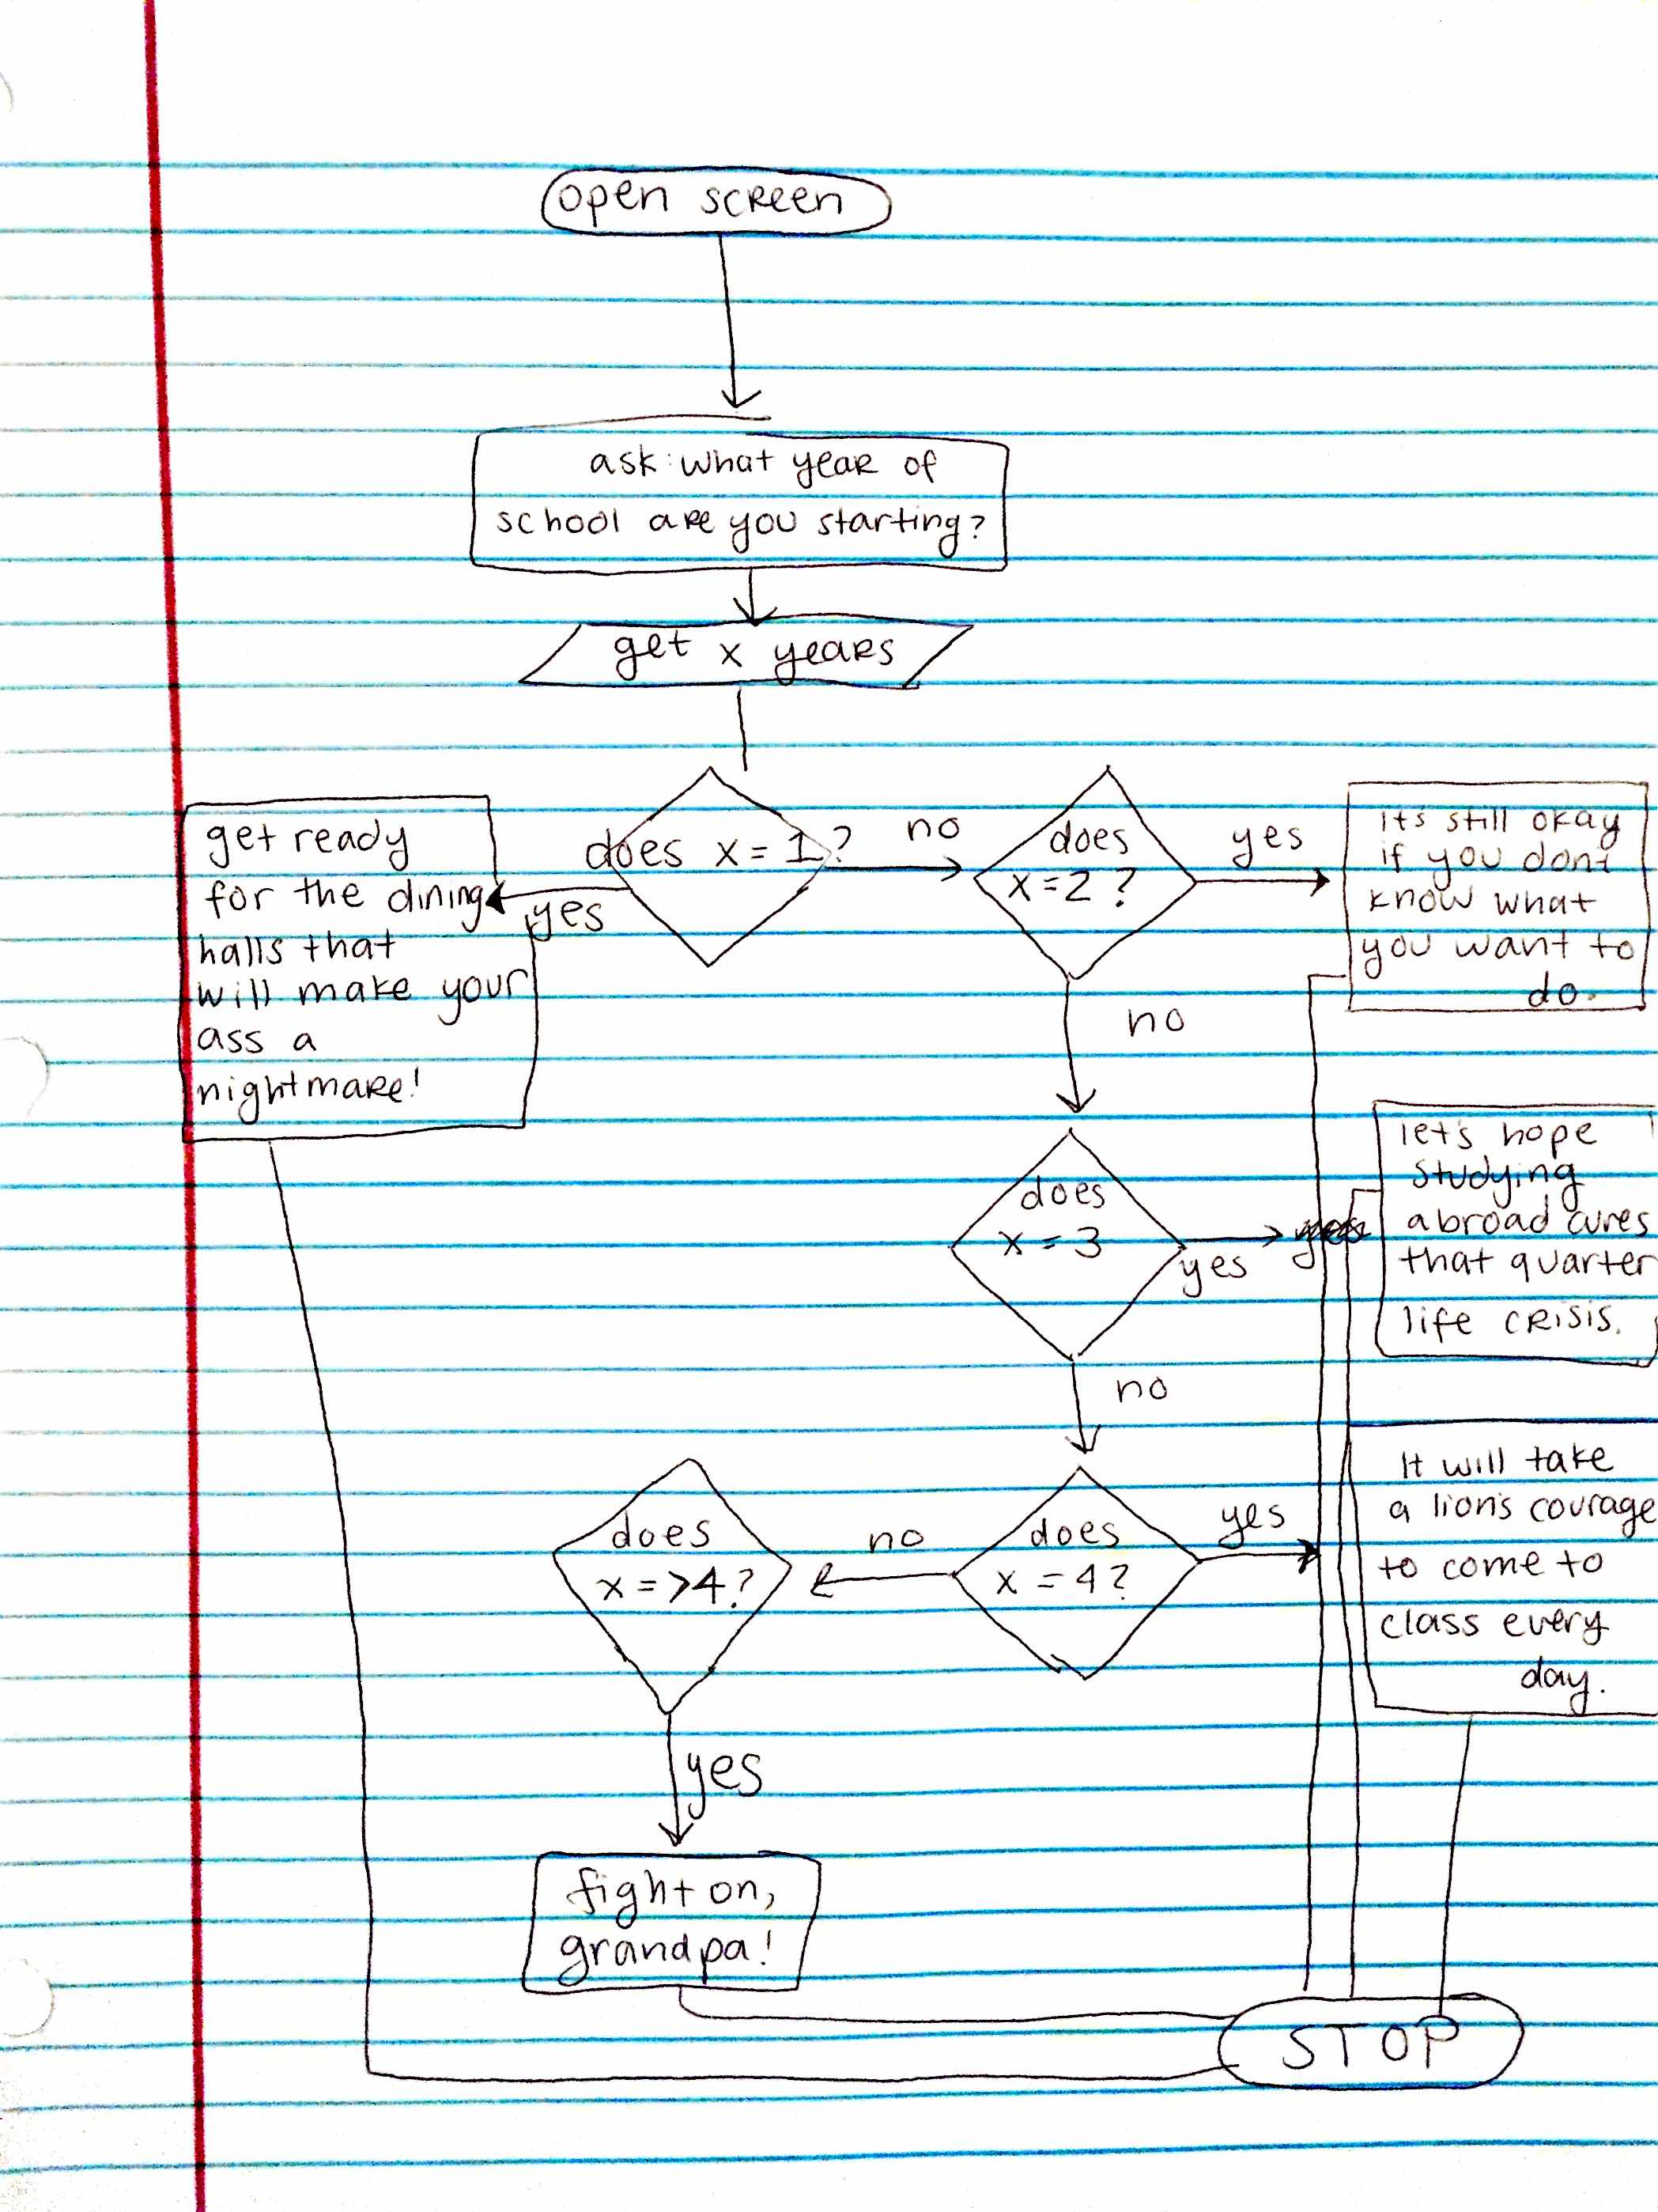 open screen
ask: what year of
school are you starting?
get x years
does x = 1?
yes
get ready
for the dining
halls that
will make your
ass a
nightmare!
no
does
x = 2 ?
yes
it's still okay
if you dont
know what
you want to
do.
no
does
x = 3
yes
let's hope
studying
abroad cures
that quarter
life crisis.
no
does
x = 4?
yes
It will take
a lion's courage
to come to
class every
day.
no
does
x = >4?
yes
fight on,
grandpa!
STOP